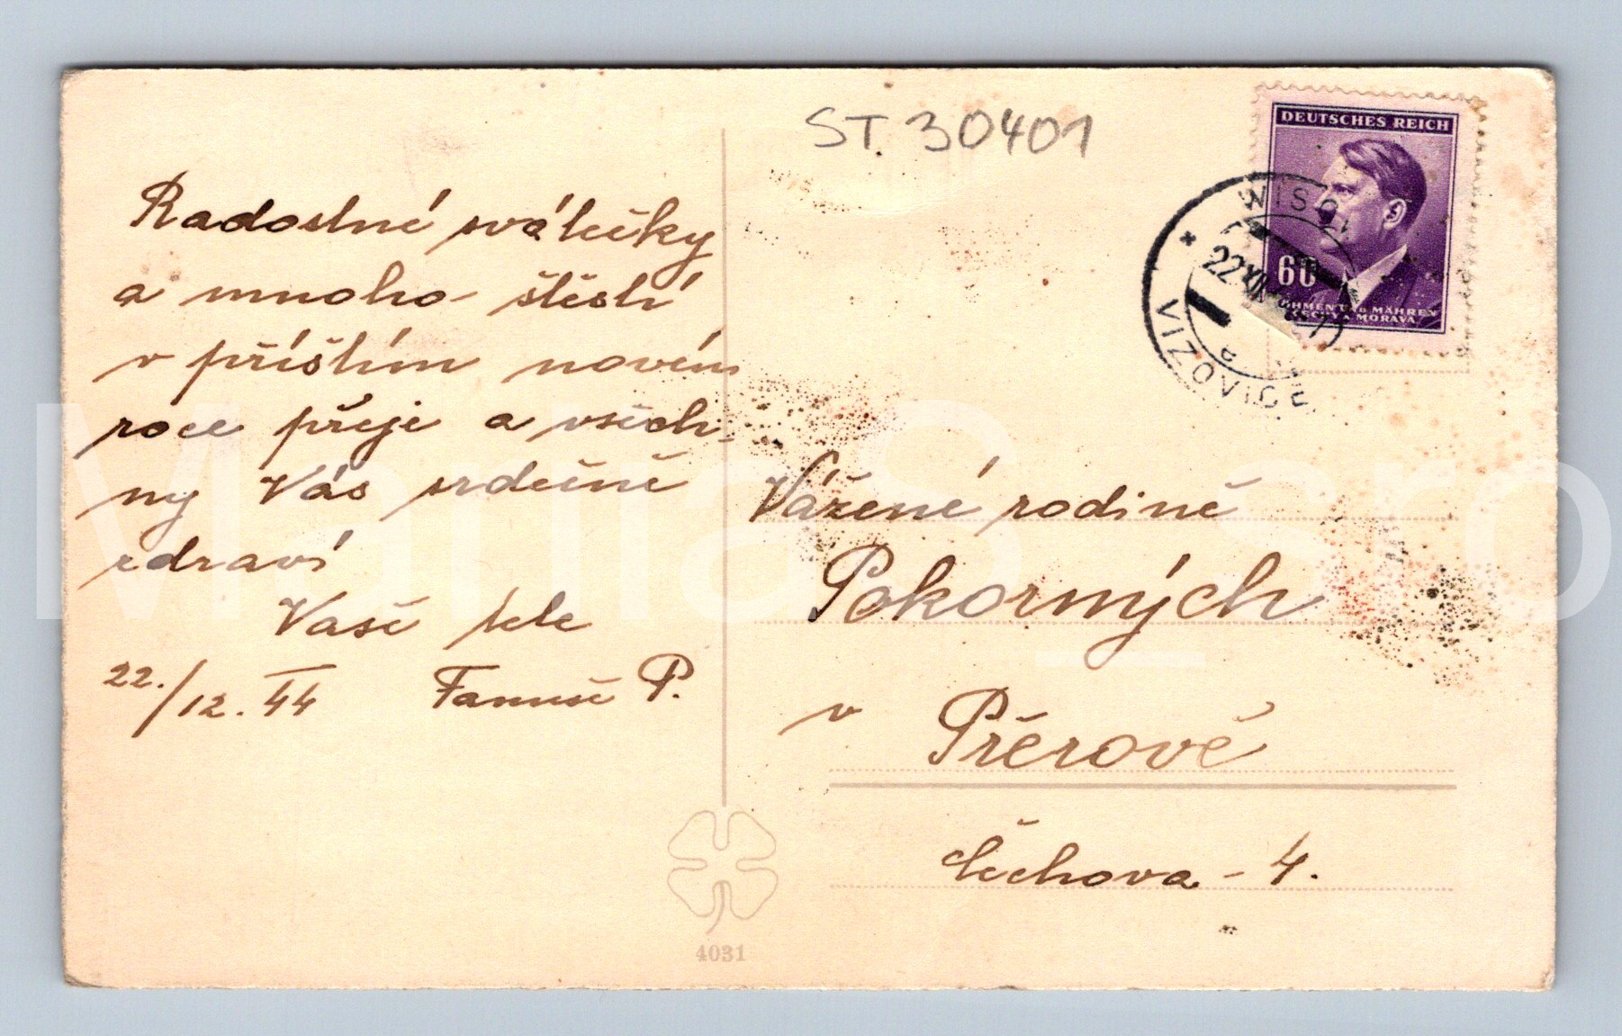 ST. 30401
DEUTSCHES REICH
60
BÖHMEN UND MÄHREN
ČECHY A MORAVA
22 XII
VIZOVICE
Radostné svátečky
a mnoho štěstí
v příštím novém
roce přeje a všech-
ny Vás srdečně
zdraví
Vaše
22./12. 44 P.
Vážené rodině
Pokorných
v Přérově
Čechova - 4.
4031